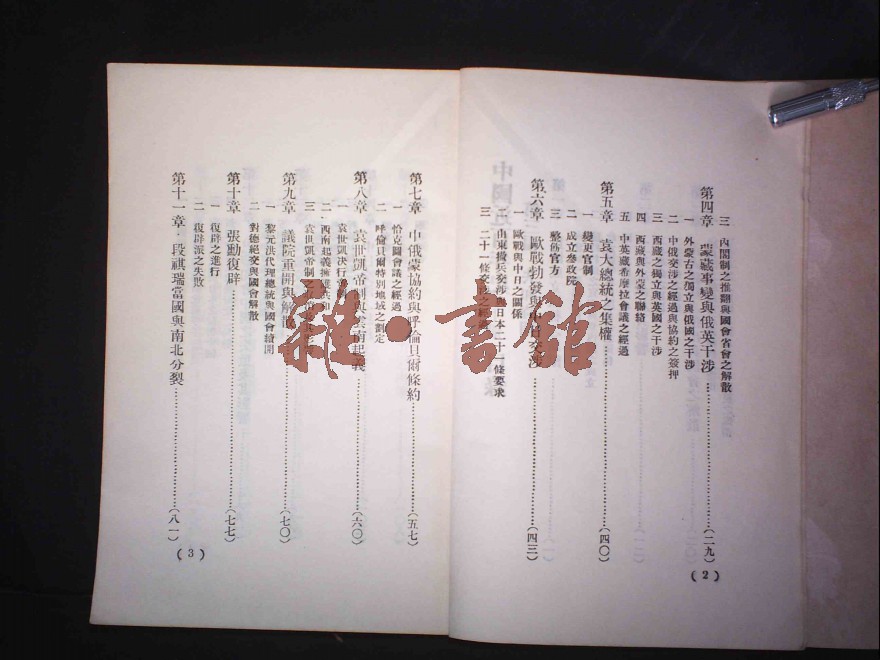 三 內閣制之推翻與國會省會之解散
第四章 蒙藏事變與俄英干涉……(二九)
一 外蒙古之獨立與俄國之干涉
二 中俄交涉之經過與協約之簽押
三 西藏之獨立與英國之干涉
四 西藏與外蒙之聯絡
五 中英藏希摩拉會議之經過
第五章 袁大總統之集權……(四〇)
一 變更官制
二 成立參政院
三 整飭官方
第六章 歐戰勃發與中日交涉……(四三)
一 歐戰與中日之關係
二 山東撤兵交涉與日本二十一條要求
三 二十一條交涉之經過
(2)
第七章 中俄蒙協約與呼倫貝爾條約……(五七)
一 恰克圖會議之經過
二 呼倫貝爾特別地域之劃定
第八章 袁世凱帝制與雲南起義……(六〇)
一 袁世凱決行帝制
二 西南起義擁護共和
三 袁世凱帝制
第九章 議院重開與解散……(七〇)
一 黎元洪代理總統與國會續開
二 對德絕交與國會解散
第十章 張勳復辟……(七七)
一 復辟之進行
二 復辟派之失敗
第十一章 段祺瑞當國與南北分裂……(八一)
(3)
雜·書館